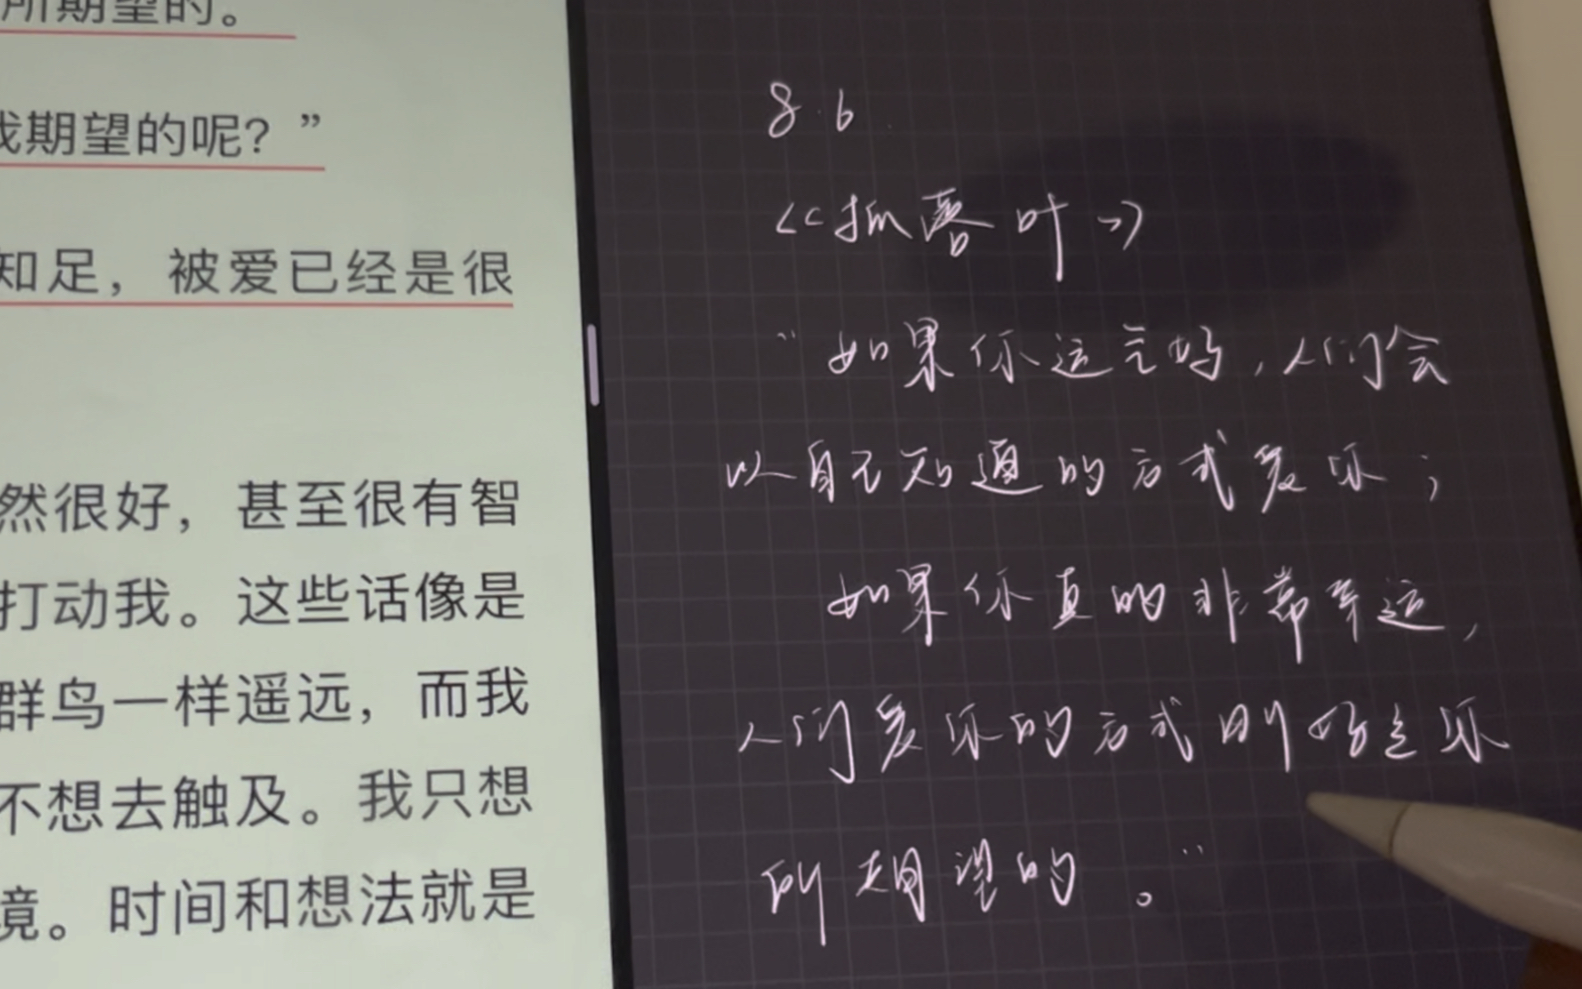 所期望的。
我期望的呢？”
知足，被爱已经是很
然很好，甚至很有智
打动我。这些话像是
群鸟一样遥远，而我
不想去触及。我只想
境。时间和想法就是
8.6
《抓落叶》
“如果你运气好，人们会
以自己知道的方式爱你；
如果你真的非常幸运，
人们爱你的方式则好是你
所期望的。”